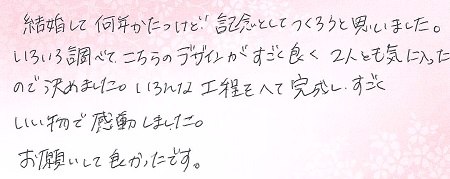 結婚して何年かたつけど記念としてつくろうと思いました。
いろいろ調べてこちらのデザインがすごく良く2人とも気に入った
ので決めました。いろんな工程をへて完成し、すごく
いい物で感動しました。
お願いして良かったです。